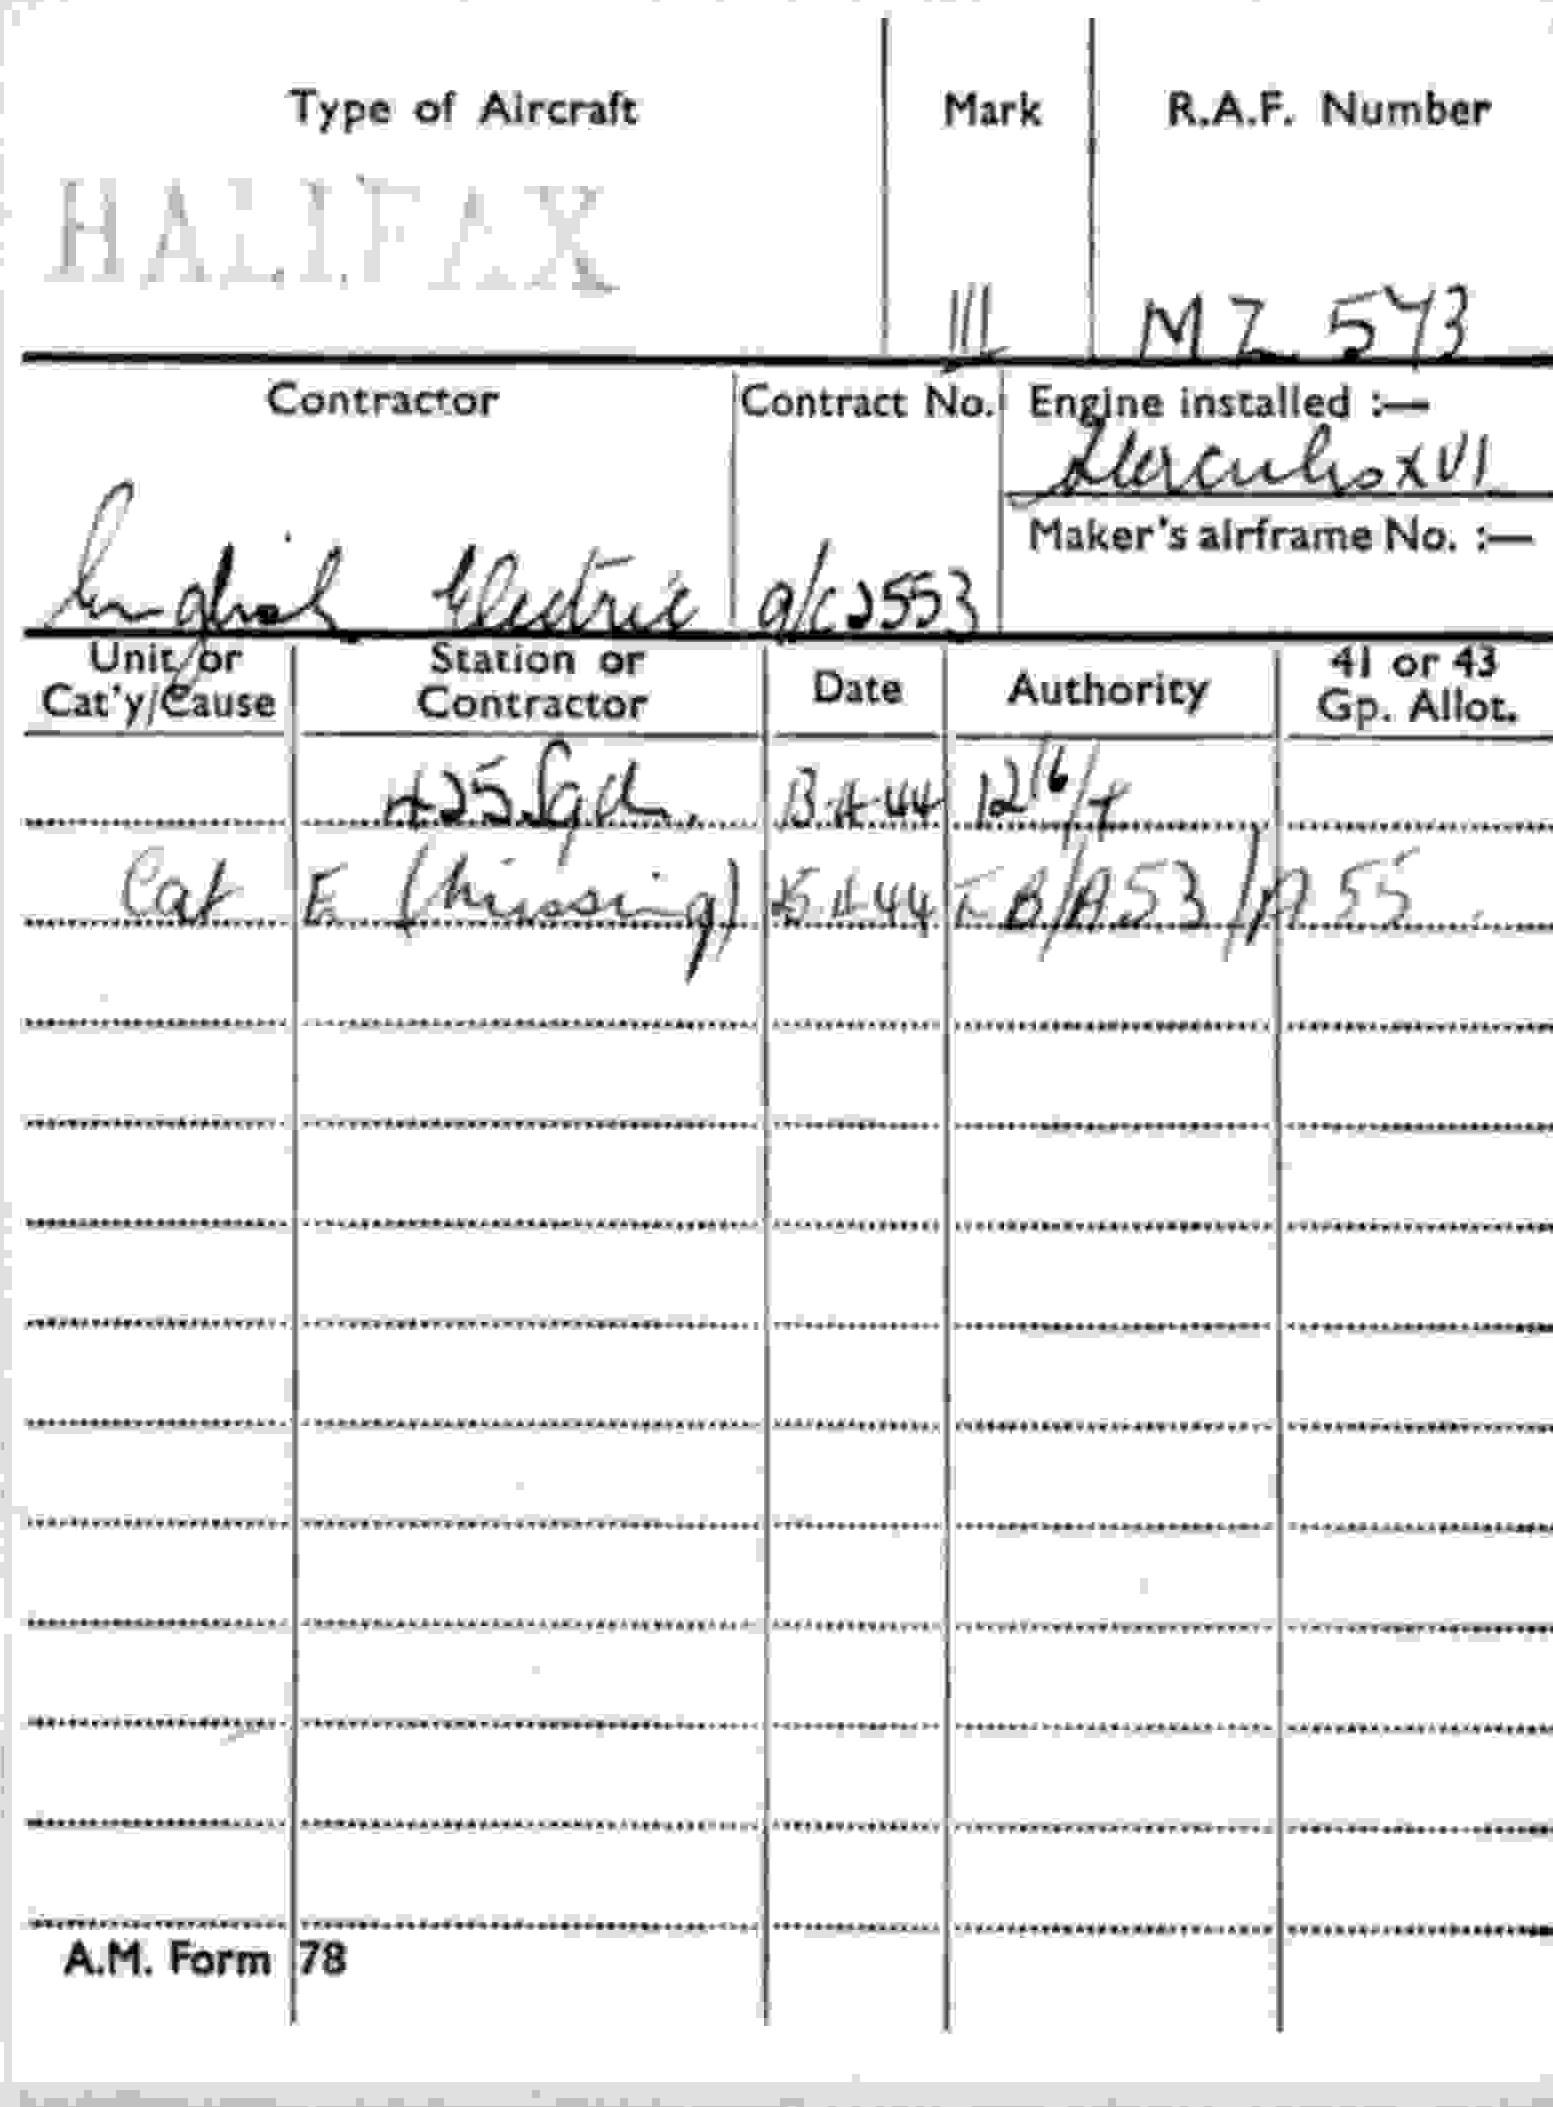 Type of Aircraft Mark R.A.F. Number
HALIFAX III MZ 573
Contractor Contract No. Engine installed :—
Hercules XVI
Maker's airframe No. :—
English Electric a/c 2553
Unit or Cat'y/Cause Station or Contractor Date Authority 41 or 43 Gp. Allot.
425 Sqd. 13.4.44
Cat E (Missing) 4.44 EB/A.53/A 55
A.M. Form 78